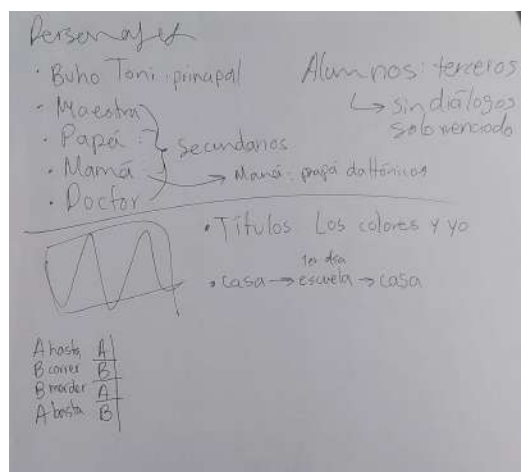 Personajes
· Buho Toni: principal
· Maestra
· Papá:
· Mamá:
· Doctor
secundarios
→ Mamá: papá daltónicos
Alumnos: terceros
↳ sin diálogos
solo menciado
· Títulos Los colores y yo
1er día
· casa → escuela → casa
A hasta A
B correr B
B morder A
A basta B